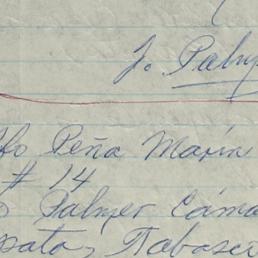 J. Palm
fo Peña Marín
# 14
Palmer Cáma
pata, Tabasco